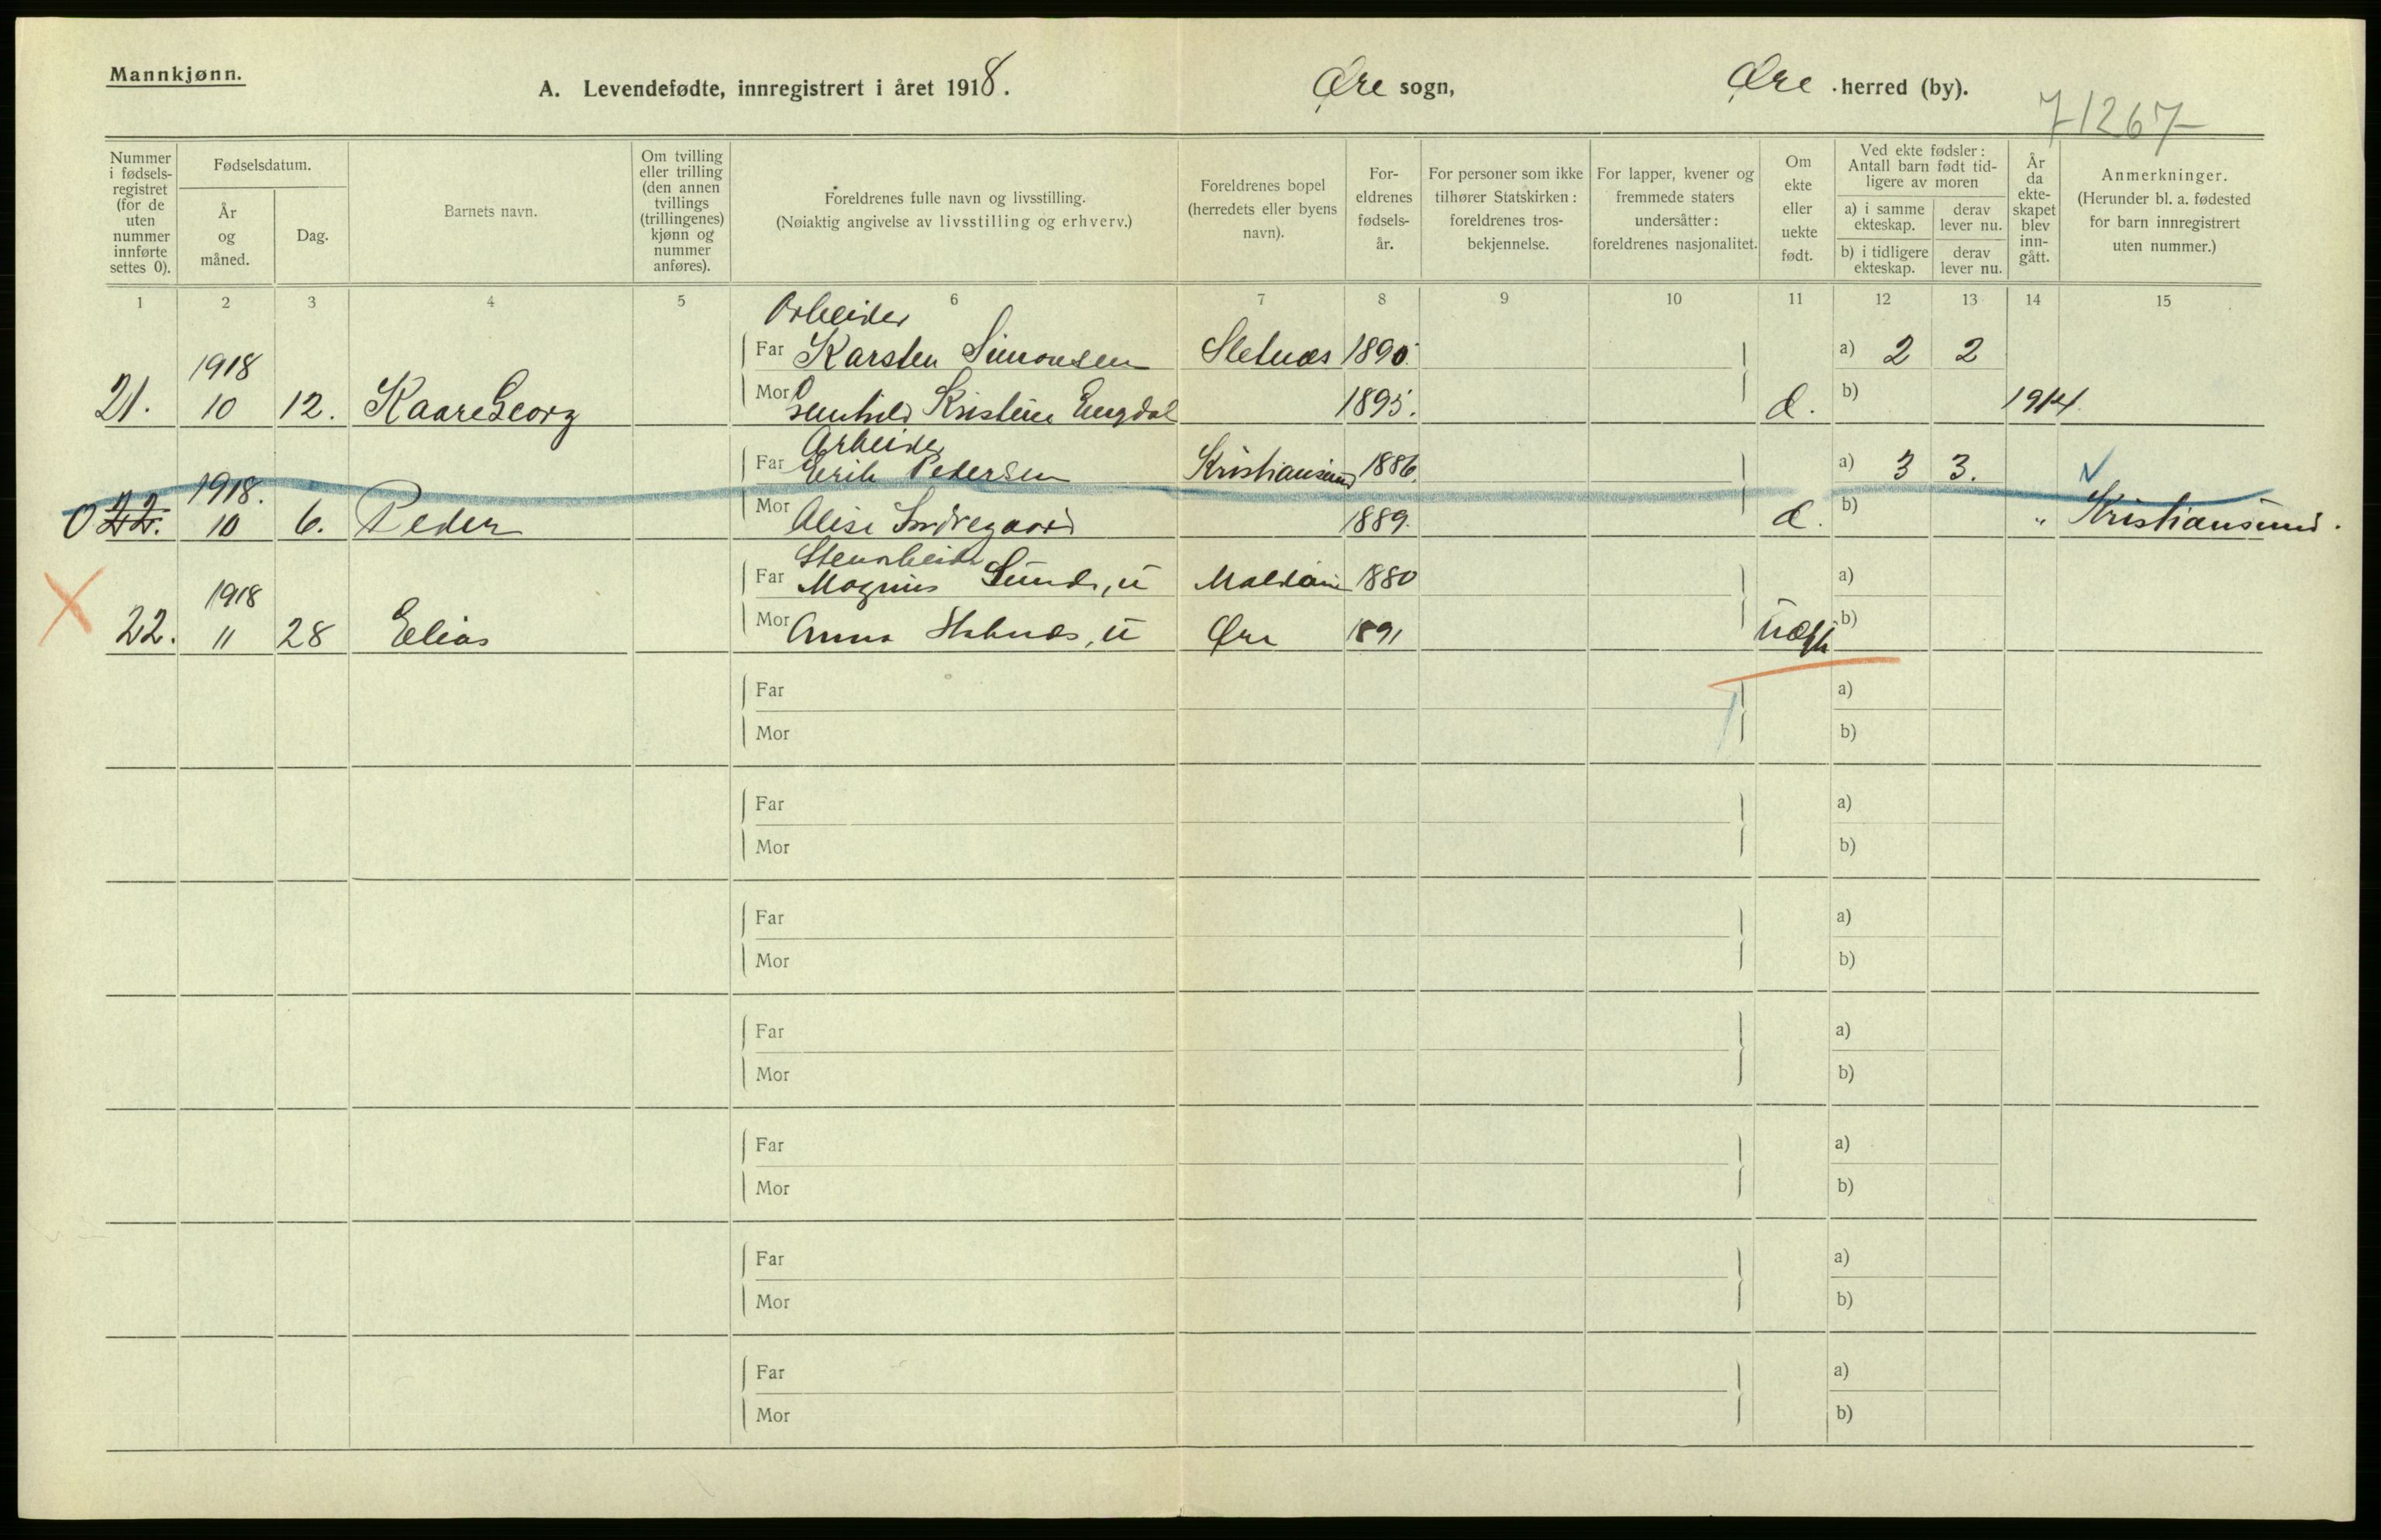 Mannkjønn.
A. Levendefødte, innregistrert i året 1918. Øre sogn, Øre herred (by).
71267
Nummer i fødsels-registret (for de uten nummer innførte settes 0).
Fødselsdatum.
År og måned.
Dag.
Barnets navn.
Om tvilling eller trilling (den annen tvillings (trillingenes) kjønn og nummer anføres).
Foreldrenes fulle navn og livsstilling.
(Nøiaktig angivelse av livsstilling og erhverv.)
Foreldrenes bopel (herredets eller byens navn).
For-eldrenes fødsels-år.
For personer som ikke tilhører Statskirken: foreldrenes tros-bekjennelse.
For lapper, kvener og fremmede staters undersåtter: foreldrenes nasjonalitet.
Om ekte eller uekte født.
Ved ekte fødsler: Antall barn født tid-ligere av moren
a) i samme ekteskap.
derav lever nu.
b) i tidligere ekteskap.
derav lever nu.
År da ekte-skapet blev inn-gått.
Anmerkninger.
(Herunder bl. a. fødested for barn innregistrert uten nummer.)
1 2 3 4 5 6 7 8 9 10 11 12 13 14 15
Arbeider
Far Karsten Simonsen Sletnæs 1890. a) 2 2
1918
21. 10 12. Kaare Georg Mor Kristine Engdal 1895. b) 1914
Arbeider
Far Erik Pedersen Kristiansund 1886. a) 3 3.
1918.
0 22. 10 6. Peder Mor 1889. b) " Kristiansund.
Far Magnus Sund, u 1880 a)
1918
22. 11 28 Elias Mor Anna u Øre 1891 b)
Far a)
Mor b)
Far a)
Mor b)
Far a)
Mor b)
Far a)
Mor b)
Far a)
Mor b)
Far a)
Mor b)
Far a)
Mor b)